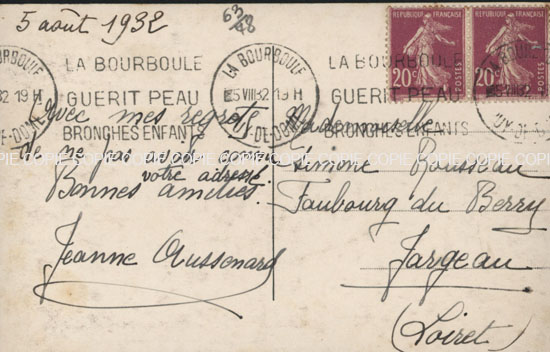 5 août 1932
63/48
LA BOURBOULE
GUERIT PEAU
BRONCHES ENFANTS
LA BOURBOULE
5 VIII 32 19 H
PUY-DE-DOME
LA BOURBOULE
GUERIT PEAU
BRONCHES ENFANTS
REPUBLIQUE FRANÇAISE
20c
POSTES
REPUBLIQUE FRANÇAISE
20c
POSTES
Avec mes regrets
de ne pas
votre adresse.
Bonnes amitiés.
Jeanne Aussenard
Mademoiselle
Simone Rousseau
Faubourg du Berry
Jargeau
(Loiret)
COPIE COPIE COPIE COPIE COPIE COPIE COPIE COPIE COPIE COPIE